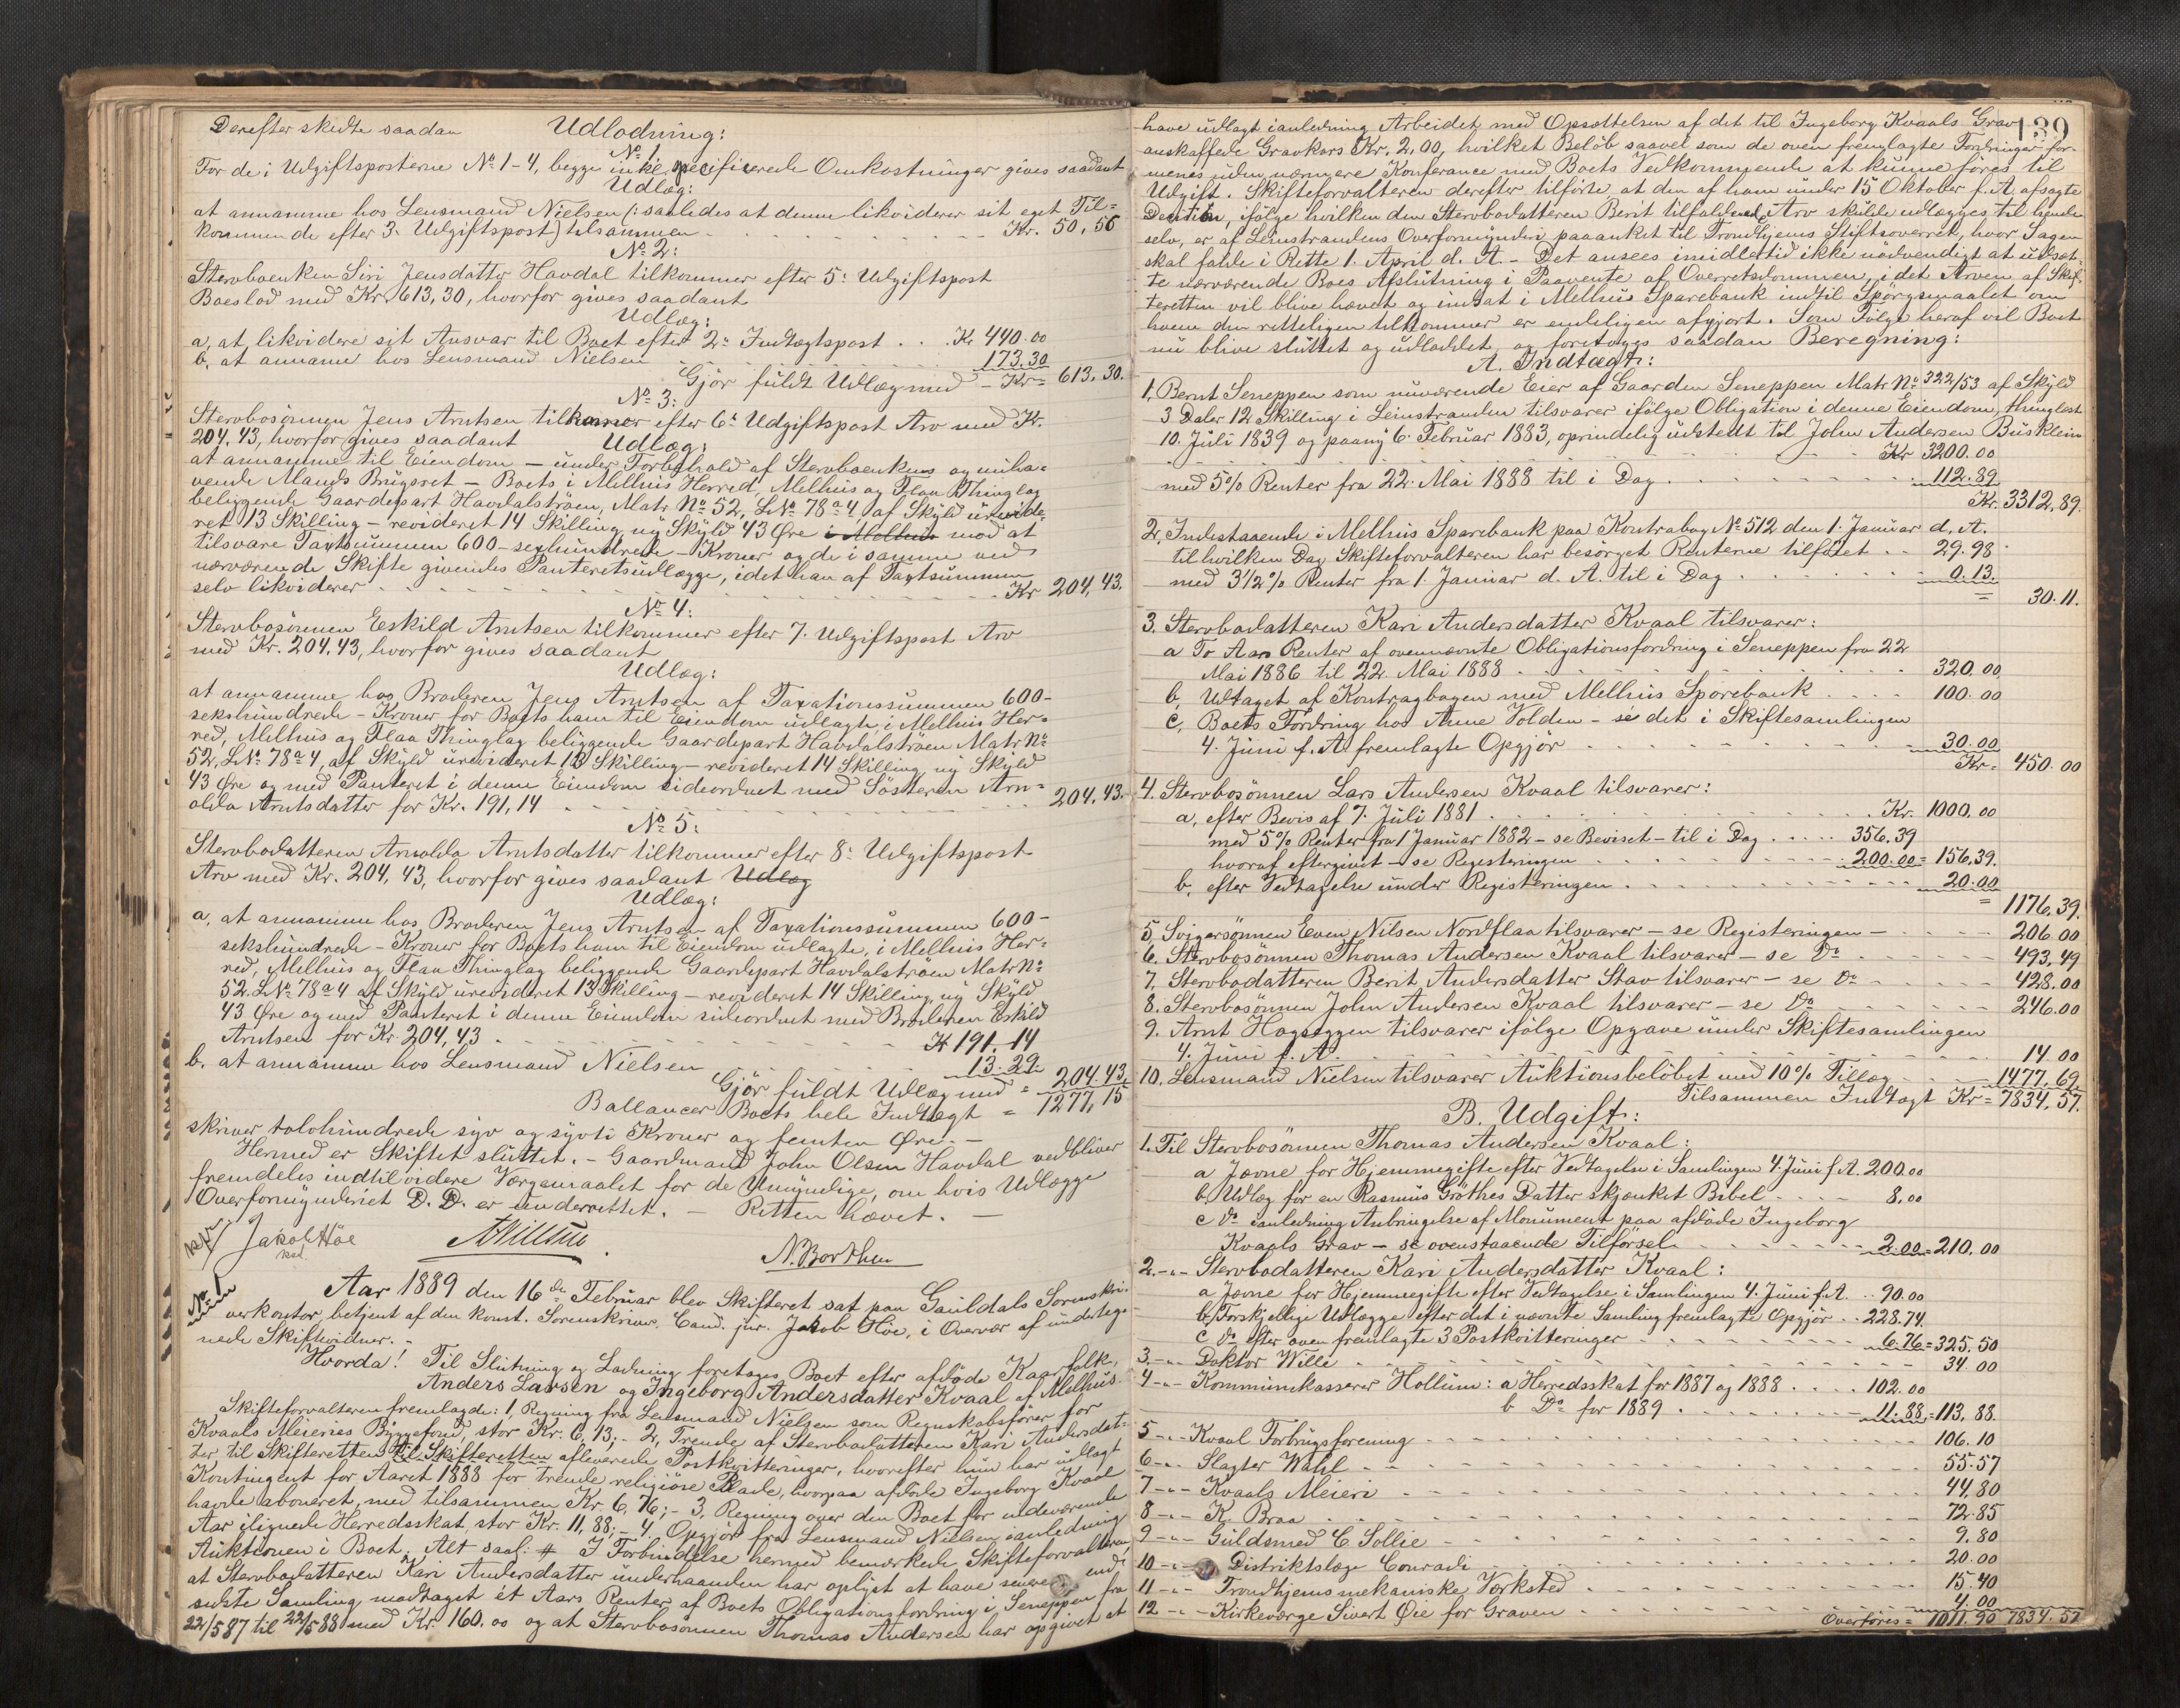 Derefter skedte saadan Udlodning:
No 1
For de i Udgiftsposterne No 1-4, begge inkl. specificerede Omkostninger gives saadant
Udlæg:
at annamme hos Lensmand Nielsen (: saaledes at denne likviderer sit eget Til-
kommende efter 3. Udgiftspost) tilsammen Kr. 50,56
No 2:
Stervboenken Siri Jensdatter Havdal tilkommer efter 5: Udgiftspost
Boeslod med Kr. 613,30, hvorfor gives saadant
Udlæg:
a, at likvidere sit Ansvar til Boet efter 2: Indtægtspost . . Kr 440.00
b, at annamme hos Lensmand Nielsen 173.30
Gjør fuldt Udlæg med - Kr = 613,30.
No 3:
Stervbosønnen Jens Arntsen tilkommer efter 6: Udgiftspost Arv med Kr.
204,43, hvorfor gives saadant Udlæg:
at annamme til Eiendom - under Forbehold af Stervboenkens og miha-
vende Mands Brugsret - Boets i Melhus Herred, Melhus og Flaa Thinglag
beliggende Gaardepart Havdalstrøen, Matr. No 52, LNo 78a4 af Skyld urevide-
ret 13 Skilling - revideret 14 Skilling ny Skyld 43 Øre i Melhus mod at
tilsvare Taxtsummen 600 - sexhundrede - Kroner og de i samme ved
nærværende Skifte givendes Panteretsudlægge, idet han af Taxtsummen
selv likviderer Kr 204,43.
No 4:
Stervbosønnen Eskild Arntsen tilkommer efter 7. Udgiftspost Arv
med Kr. 204,43, hvorfor gives saadant
Udlæg:
at annamme hos Broderen Jens Arntsen af Taxationssummen 600-
sekshundrede - Kroner for Boets ham til Eiendom udlagte, i Melhus Her-
red, Melhus og Flaa Thinglag beliggende Gaardepart Havdalstrøen Matr No
52, LNo 78a4, af Skyld urevideret 13 Skilling - revideret 14 Skilling ny Skyld
43 Øre og med Panteret i denne Eiendom sideordnet med Søsteren Arn-
olda Arntsdatter for Kr. 191,14 204,43.
No 5:
Stervbodatteren Arnolda Arntsdatter tilkommer efter 8: Udgiftspost
Arv med Kr. 204,43, hvorfor gives saadant Udlæg
Udlæg:
a, at annamme hos Broderen Jens Arntsen af Taxationssummen 600-
sekshundrede - Kroner for Boets ham til Eiendom udlagte, i Melhus Her-
red, Melhus og Flaa Thinglag beliggende Gaardepart Havdalstrøen Matr No
52. LNo 78a4 af Skyld urevideret 13 Skilling - revideret 14 Skilling, ny Skyld
43 Øre og med Panteret i denne Eiendom sideordnet med Broderen Eskild
Arntsen for Kr. 204,43 Kr 191.14
b. at annamme hos Lensmand Nielsen 13.29
Gjør fuldt Udlæg med = 204.43
Ballancer Boets hele Indtægt = 1277,15
skriver tolvhundrede syv og syvti Kroner og femten Øre. -
Hermed er Skiftet sluttet. - Gaardmand John Olsen Havdal vedbliver
fremdeles indtil videre Værgemaalet for de Umyndige, om hvis Udlægge
Overformynderiet D. D. er underrettet. - Retten hævet. -
Jakob Høe
kst.
N. Borthen
Aar 1889 den 16de Februar blev Skifteret sat paa Guldals Sorenskri-
verkontor, betjent af den konst. Sorenskriver, Cand. jur. Jakob Höe, i Overvær af undertegn-
nede Skiftevidner. -
Hvorda! Til Slutning og Lodning foretages Boet efter afdøde Kaarfolk,
Anders Larsen og Ingeborg Andersdatter Kvaal af Melhus.
Skifteforvalteren fremlagde: 1, Regning fra Lensmand Nielsen som Regnskabsfører for
Kvaals Meieries Byggefond, stor Kr. 6,13; - 2, Trende af Stervbodatteren Kari Andersdat-
ter til Skifteretten til Skifteretten afleverede Postkvitteringer, hvorefter hun har udlagt
Kontingent for Aaret 1888 for trende religiøse Blade, hvorpaa afdøde Ingeborg Kvaal
havde aboneret, med tilsammen Kr. 6,76; - 3, Regning over den Boet for indeværende
Aar ilignede Herredsskat, stor Kr. 11,88; - 4, Opgjør fra Lensmand Nielsen ianledning
Auktionen i Boet. Alt saal: # I Forbindelse hermed bemærkede Skifteforvalteren,
at Stervbodatteren Kari Andersdatter underhaanden har oplyst at have senere end
sidste Samling modtaget ét Aars Renter af Boets Obligationsfordring i Seneppen fra
22/5 87 til 22/5 88 med Kr. 160.00 og at Stervbosønnen Thomas Andersen har opgivet at
139
have udlagt ianledning Arbeidet med Opsættelsen af det til Ingeborg Kvaals Grav
anskaffede Gravkors Kr. 2,00, hvilket Beløb saavel som de oven fremlagte Fordringer for-
menes uden nærmere Konferance med Boets Vedkommende at kunne føres til
Udgift. Skifteforvalteren derefter tilførte, at den af ham under 15 Oktober f. A. afsagte
Decision, ifølge hvilken den Stervbodatteren Berit tilfaldende Arv skulde udlægges til hende
selv, er af Leinstrandens Overformynderi paaanket til Trondhjems Stiftsoverret, hvor Sagen
skal falde i Rette 1. April d. A. - Det ansees imidlertid ikke nødvendigt at udsæt-
te nærværende Boes Afslutning i Paavente af Overretsdommen, idet Arven af Skif-
teretten vil blive hævet og indsat i Melhus Sparebank indtil Spørgsmaalet om
hvem den rettelig tilkommer er endeligen afgjort. Som Følge heraf vil Boet
nu blive sluttet og udloddet, og foretoges saadan Beregning:
A. Indtægt:
1, Bernt Seneppen som nuværende Eier af Gaarden Seneppen Matr No 322/53 af Skyld
3 Daler 12 Skilling i Leinstranden tilsvarer ifølge Obligation i denne Eiendom, thinglæst
10. Juli 1839 og paany 6. Februar 1883, oprindelig udstedt til John Andersen Busklein
Kr 3200.00
med 5% Renter fra 22. Mai 1888 til i Dag 112.89
Kr. 3312,89.
2, Indestaaende i Melhus Sparebank paa Kontrabog No 512 den 1. Januar d. A.
til hvilken Dag Skifteforvalteren har besørget Renterne tilføiet . . 29.98
med 3 1/2 % Renter fra 1. Januar d. A. til i Dag 0.13.
= 30.11.
3. Stervbodatteren Kari Andersdatter Kvaal tilsvarer:
a To Aars Renter af ovennævnte Obligationsfordring i Seneppen fra 22
Mai 1886 til 22. Mai 1888 320.00
b, Udtaget af Kontragbogen med Melhus Sparebank 100.00
c, Boets Fordring hos Anne Volden - se det i Skiftesamlingen
4. Juni f. A. fremlagte Opgjør 30.00
Kr. 450.00
4. Stervbosønnen Lars Andersen Kvaal tilsvarer:
a, efter Bevis af 7. Juli 1881 Kr. 1000.00
med 5% Renter fra 1 Januar 1882 - se Beviset - til i Dag 356.39
hvoraf eftergivet - se Registeringen 200.00 = 156,39.
b, efter Vedtagelse under Registeringen 20.00
= 1176,39.
5 Svigersønnen Even Nilsen Nordflaa tilsvarer - se Registeringen - 206.00
6. Stervbosønnen Thomas Andersen Kvaal tilsvarer - se Do 493,49
7, Stervbodatteren Berit Andersdatter Stav tilsvarer - se Do 428.00
8. Stervbosønnen John Andersen Kvaal tilsvarer - se Do 246.00
9. Arnt Hagseggen tilsvarer ifølge Opgave under Skiftesamlingen
4. Juni f. A. 14.00
10. Lensmand Nielsen tilsvarer Auktionsbeløbet med 10% Tillæg 1477,69
Tilsammen Indtægt Kr = 7834,57.
B. Udgift:
1. Til Stervbosønnen Thomas Andersen Kvaal:
a Jævne for Hjemmegifte efter Vedtagelse i Samlingen 4. Juni f. A. 200.00
b, Udlæg for en Rasmus Gröthes Datter skjænket Bibel 8,00
c Do ianledning Anbringelse af Monument paa afdøde Ingeborg
Kvaals Grav - se ovenstaaende Tilførsel 2.00 = 210,00
2. -"- Stervbodatteren Kari Andersdatter Kvaal:
a Jævne for Hjemmegifte efter Vedtagelse i Samlingen 4. Juni f. A. 90.00
b, Forskjellige Udlægge efter det i nævnte Samling fremlagte Opgjør . . 228.74
c Do efter oven fremlagte 3 Postkvitteringer 6.76 = 325.50
3. -"- Doktor Wille 34.00
4 -"- Kommunekasserer Hollum: a Herredsskat for 1887 og 1888 102.00
b Do for 1889 11.88 = 113,88
5 -"- Kvaal Forbrugsforening 106.10
6 -"- Slagter Wahl 55.57
7 -"- Kvaals Meieri 44,80
8 -"- K. Braa 72.85
9 -"- Guldsmed C. Sollie 9.80
10 -"- Distriktslæge Conradi 20.00
11 -"- Trondhjems mekaniske Værksted 15.40
12 -"- Kirkeværge Sivert Øie for Graven 4.00
Overføres = 1011.90 7834.57